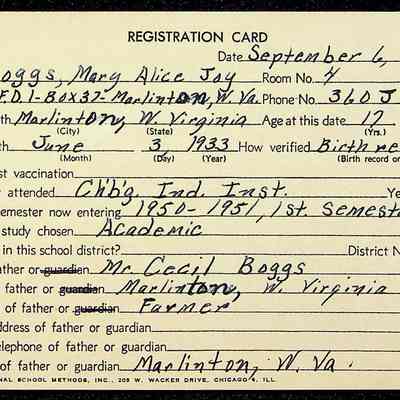 REGISTRATION CARD
Date September 6,
oggs, Mary Alice Joy Room No. 4
F.D.1-Box37-Marlinton, W. Va. Phone No. 360 J
th Marlinton, W. Virginia Age at this date 17
(City) (State) (Yrs.)
th June 3, 1933 How verified Birth re
(Month) (Day) (Year) (Birth record or
st vaccination
r attended Ch'b'g. Ind. Inst. Ye
semester now entering 1950-1951, 1st. Semest
study chosen Academic
in this school district? District N
ather or guardian Mr. Cecil Boggs
father or guardian Marlinton, W. Virginia
of father or guardian Farmer
ddress of father or guardian
elephone of father or guardian
of father or guardian Marlinton, W. Va.
NAL SCHOOL METHODS, INC., 205 W. WACKER DRIVE, CHICAGO 6, ILL.